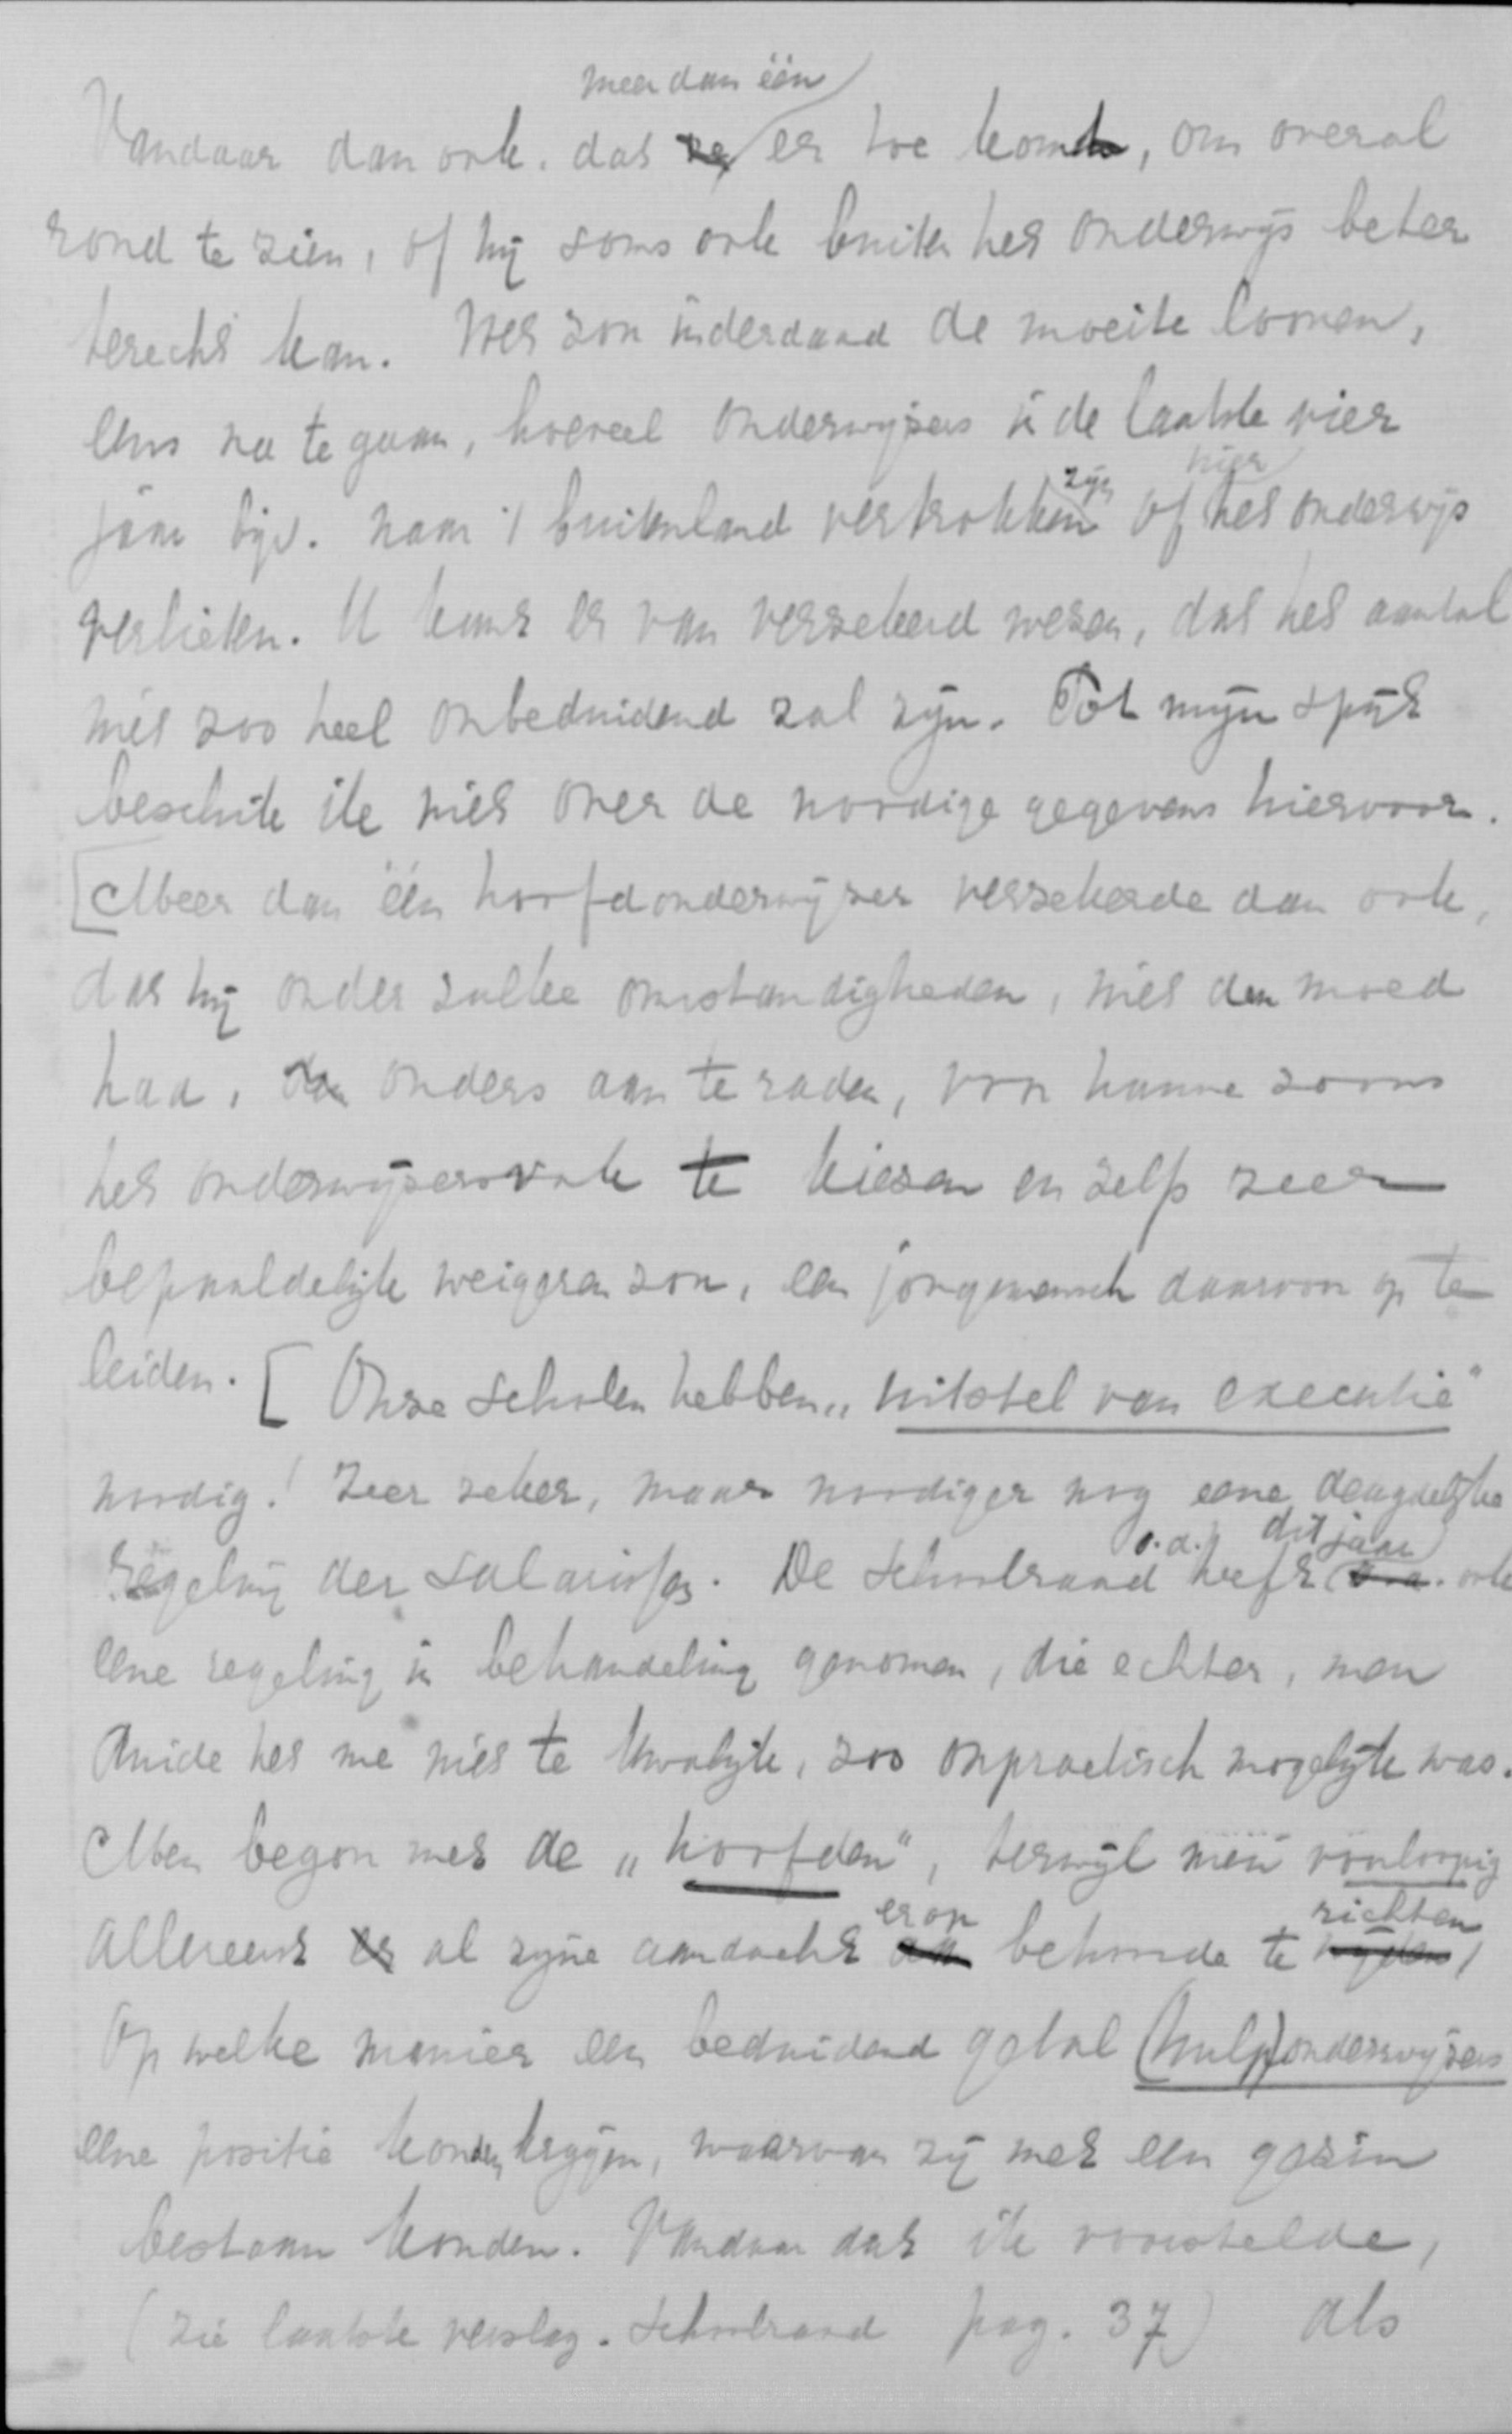 meer dan één
Vandaar dan ook. dat ze er toe komt, om overal
rond te zien, of hij soms ook buiten het onderwijs beter
terecht kan. Het zou inderdaad de moeite loonen,
eens na te gaan, hoeveel onderwijzers in de laatste vier
zijn hier
jaar bijv. naar 't buitenland vertrokken of het onderwijs
verlieten. U kunt er van verzekerd wezen, dat het aantal
niet zoo heel onbeduidend zal zijn. Tot mijn spijt
beschik ik niet over de noodige gegevens hiervoor.
[Meer dan één hoofdonderwijzer verzekerde dan ook,
dat hij onder zulke omstandigheden, niet den moed
had, den ouders aan te raden, voor hunne zoons
het onderwijzersvak te kiezen en zelfs zeer
bepaaldelijk weigeren zou, een jongmensch daarvoor op te
leiden. [Onze scholen hebben „uitstel van executie"
noodig! Zeer zeker, maar noodiger nog eene deugdelijke
o.a. dit jaar
regeling der salarissen. De Schoolraad heeft o.a. ook
eene regeling in behandeling genomen, die echter, men
duide het me niet te kwalijk, zoo onpractisch mogelijk was.
Men begon met de „hoofden", terwijl men voorloopig
erop richten
allereerst er al zijne aandacht aan behoorde te wijden,
Op welke manier een beduidend getal (hulp)onderwijzers
eene positie konden krijgen, waarvan zij met een gezin
bestaan konden. Vandaar dat ik voorstelde,
(zie laatste verslag. Schoolraad pag. 37) als